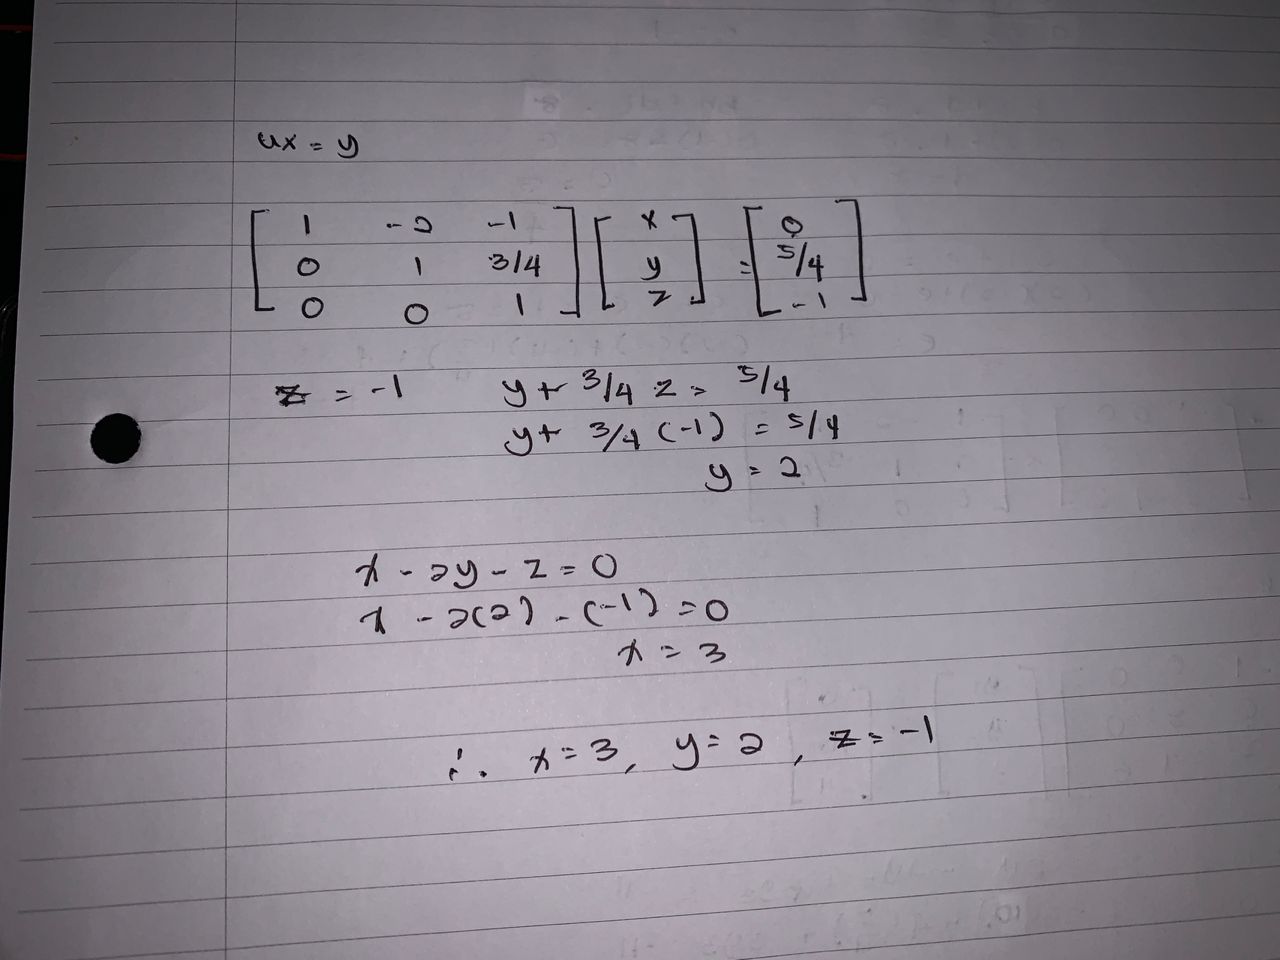 ux = y
[1 -2 -1] [x] = [0]
[0 1 3/4] [y] [5/4]
[0 0 1] [z] [-1]
z = -1 y + 3/4 z = 5/4
y + 3/4 (-1) = 5/4
y = 2
x - 2y - z = 0
x - 2(2) - (-1) = 0
x = 3
∴ x = 3, y = 2, z = -1